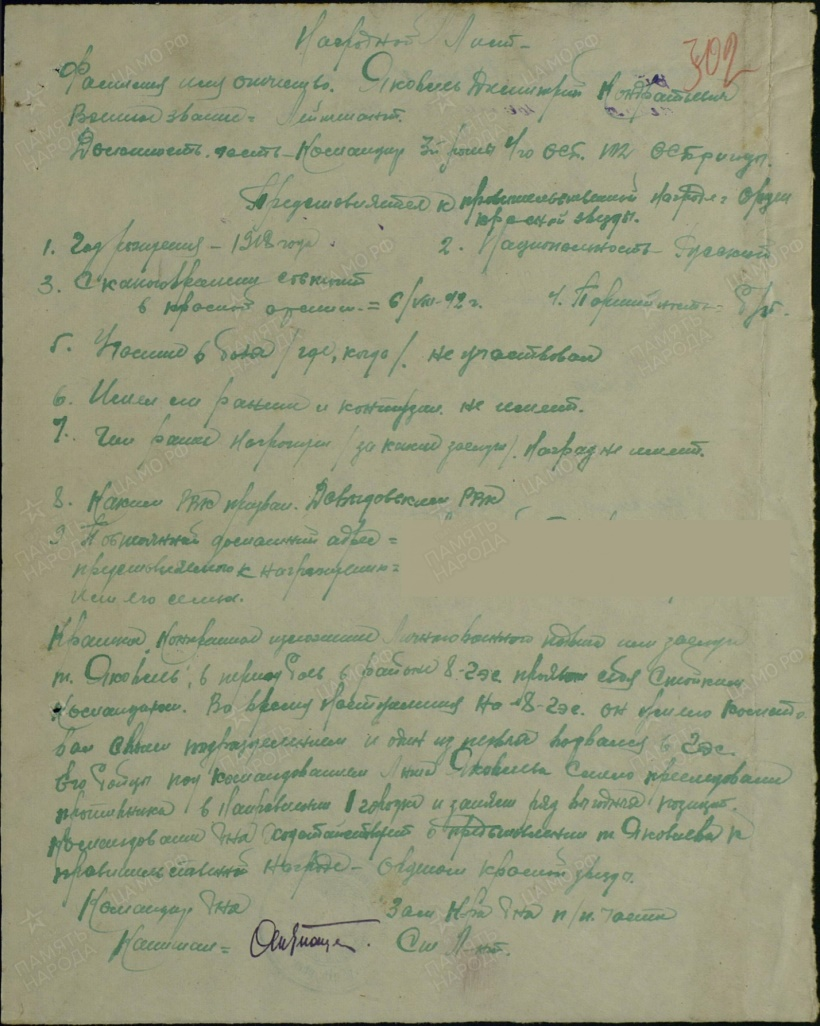 302
Наградной Лист-
Фамилия имя отчество. Яковель Дмитрий Кондратьевич
Военное звание = Лейтенант.
Должность, часть - Командир 3й роты 4го ОСБ. 112 ОСБригады.
Представляется к правительственной награде = Орден
красной звезды.
1. Год рождения - 1918 года. 2. Национальность - Русский
3. С какого времени состоит
в красной армии. = 6/VIII-42 г. 4. Партийность = б/п.
5. Участие в боях /где, когда/. не участвовал
6. Имеет ли ранения и контузии. не имеет.
7. Чем ранее награжден /за какие заслуги/. Наград не имеет.
8. Каким РВК призван. Давыдовским РВК
9. Постоянный домашний адрес =
представляемого к награждению =
или его семьи.
Краткое, конкретное изложение личного военного подвига или заслуг
т. Яковель, в период боев в районе 8-Гэс проявил себя стойким
командиром. Во время наступления на 8-Гэс. он умело командо-
вал своим подразделением и один из первых ворвался в Гэс.
Его бойцы под командованием Л-нта Яковлева смело преследовали
противника в направлении 1 городка и заняли ряд выгодных позиций.
Командование б-на ходатайствует о представлении т. Яковлева к
правительственной награде - орденом красной звезды.
Командир б-на Зам К-ра б-на п/п. части
Капитан = Ст Л-нт.
ПАМЯТЬ НАРОДА
ЦАМО РФ